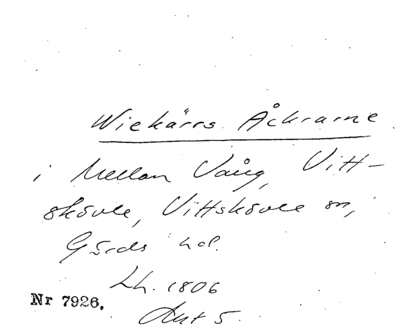 Wiekärrs Åckrarne
i Mellan Vång, Vitt-
skövle, Vittskövle sn,
Gärds hd.
Lh. 1806
Akt 5.
Nr 7926.